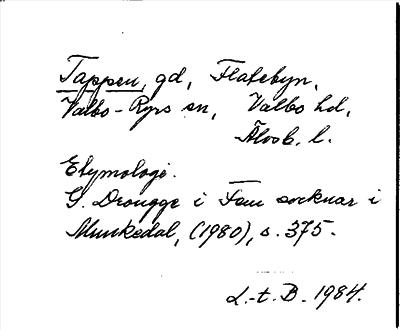 Tappen, gd, Flatebyn,
Valbo-Ryrs sn, Valbo hd,
Älvsb. l.
Etymologi.
G. Drougge i Fem socknar i
Munkedal, (1980), s. 375.
L.-t. B. 1984.